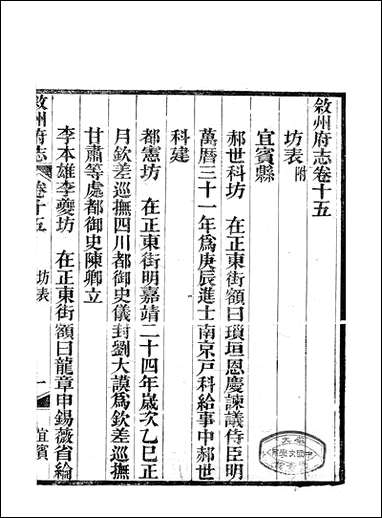 敘州府志卷十五
坊表附
宜賓縣
郝世科坊 在正東街額曰瑣垣恩慶諫議侍臣明
萬曆三十一年爲庚辰進士南京戶科給事中郝世
科建
都憲坊 在正東街明嘉靖二十四年歲次乙巳正
月欽差巡撫四川都御史儀封劉大謨爲欽差巡撫
甘肅等處都御史陳卿立
李本雄李夔坊 在正東街額曰龍章申錫薇省綸
敘州府志 卷十五 坊表 一 宜賓